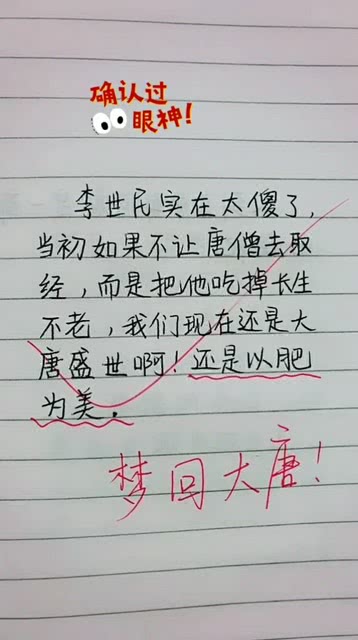 确认过
眼神!
李世民实在太傻了,
当初如果不让唐僧去取
经,而是把他吃掉长生
不老,我们现在还是大
唐盛世啊!还是以肥
为美.
梦回大唐!